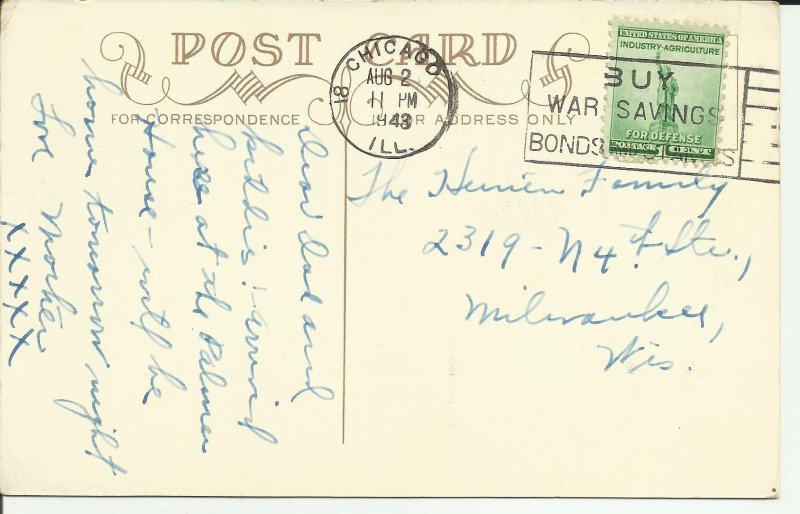 POST CARD
FOR CORRESPONDENCE
FOR ADDRESS ONLY
CHICAGO
18
AUG 2
11 PM
1943
ILL.
BUY
WAR SAVINGS
BONDS AND STAMPS
UNITED STATES OF AMERICA
INDUSTRY-AGRICULTURE
FOR DEFENSE
POSTAGE 1 CENT
The Family
2319 - N 4th St.,
Milwaukee,
Wis.
Dear Dad and
kiddis: - arrived
here at the Palmer
House - will be
home tomorrow night
Love Mother
xxxxx